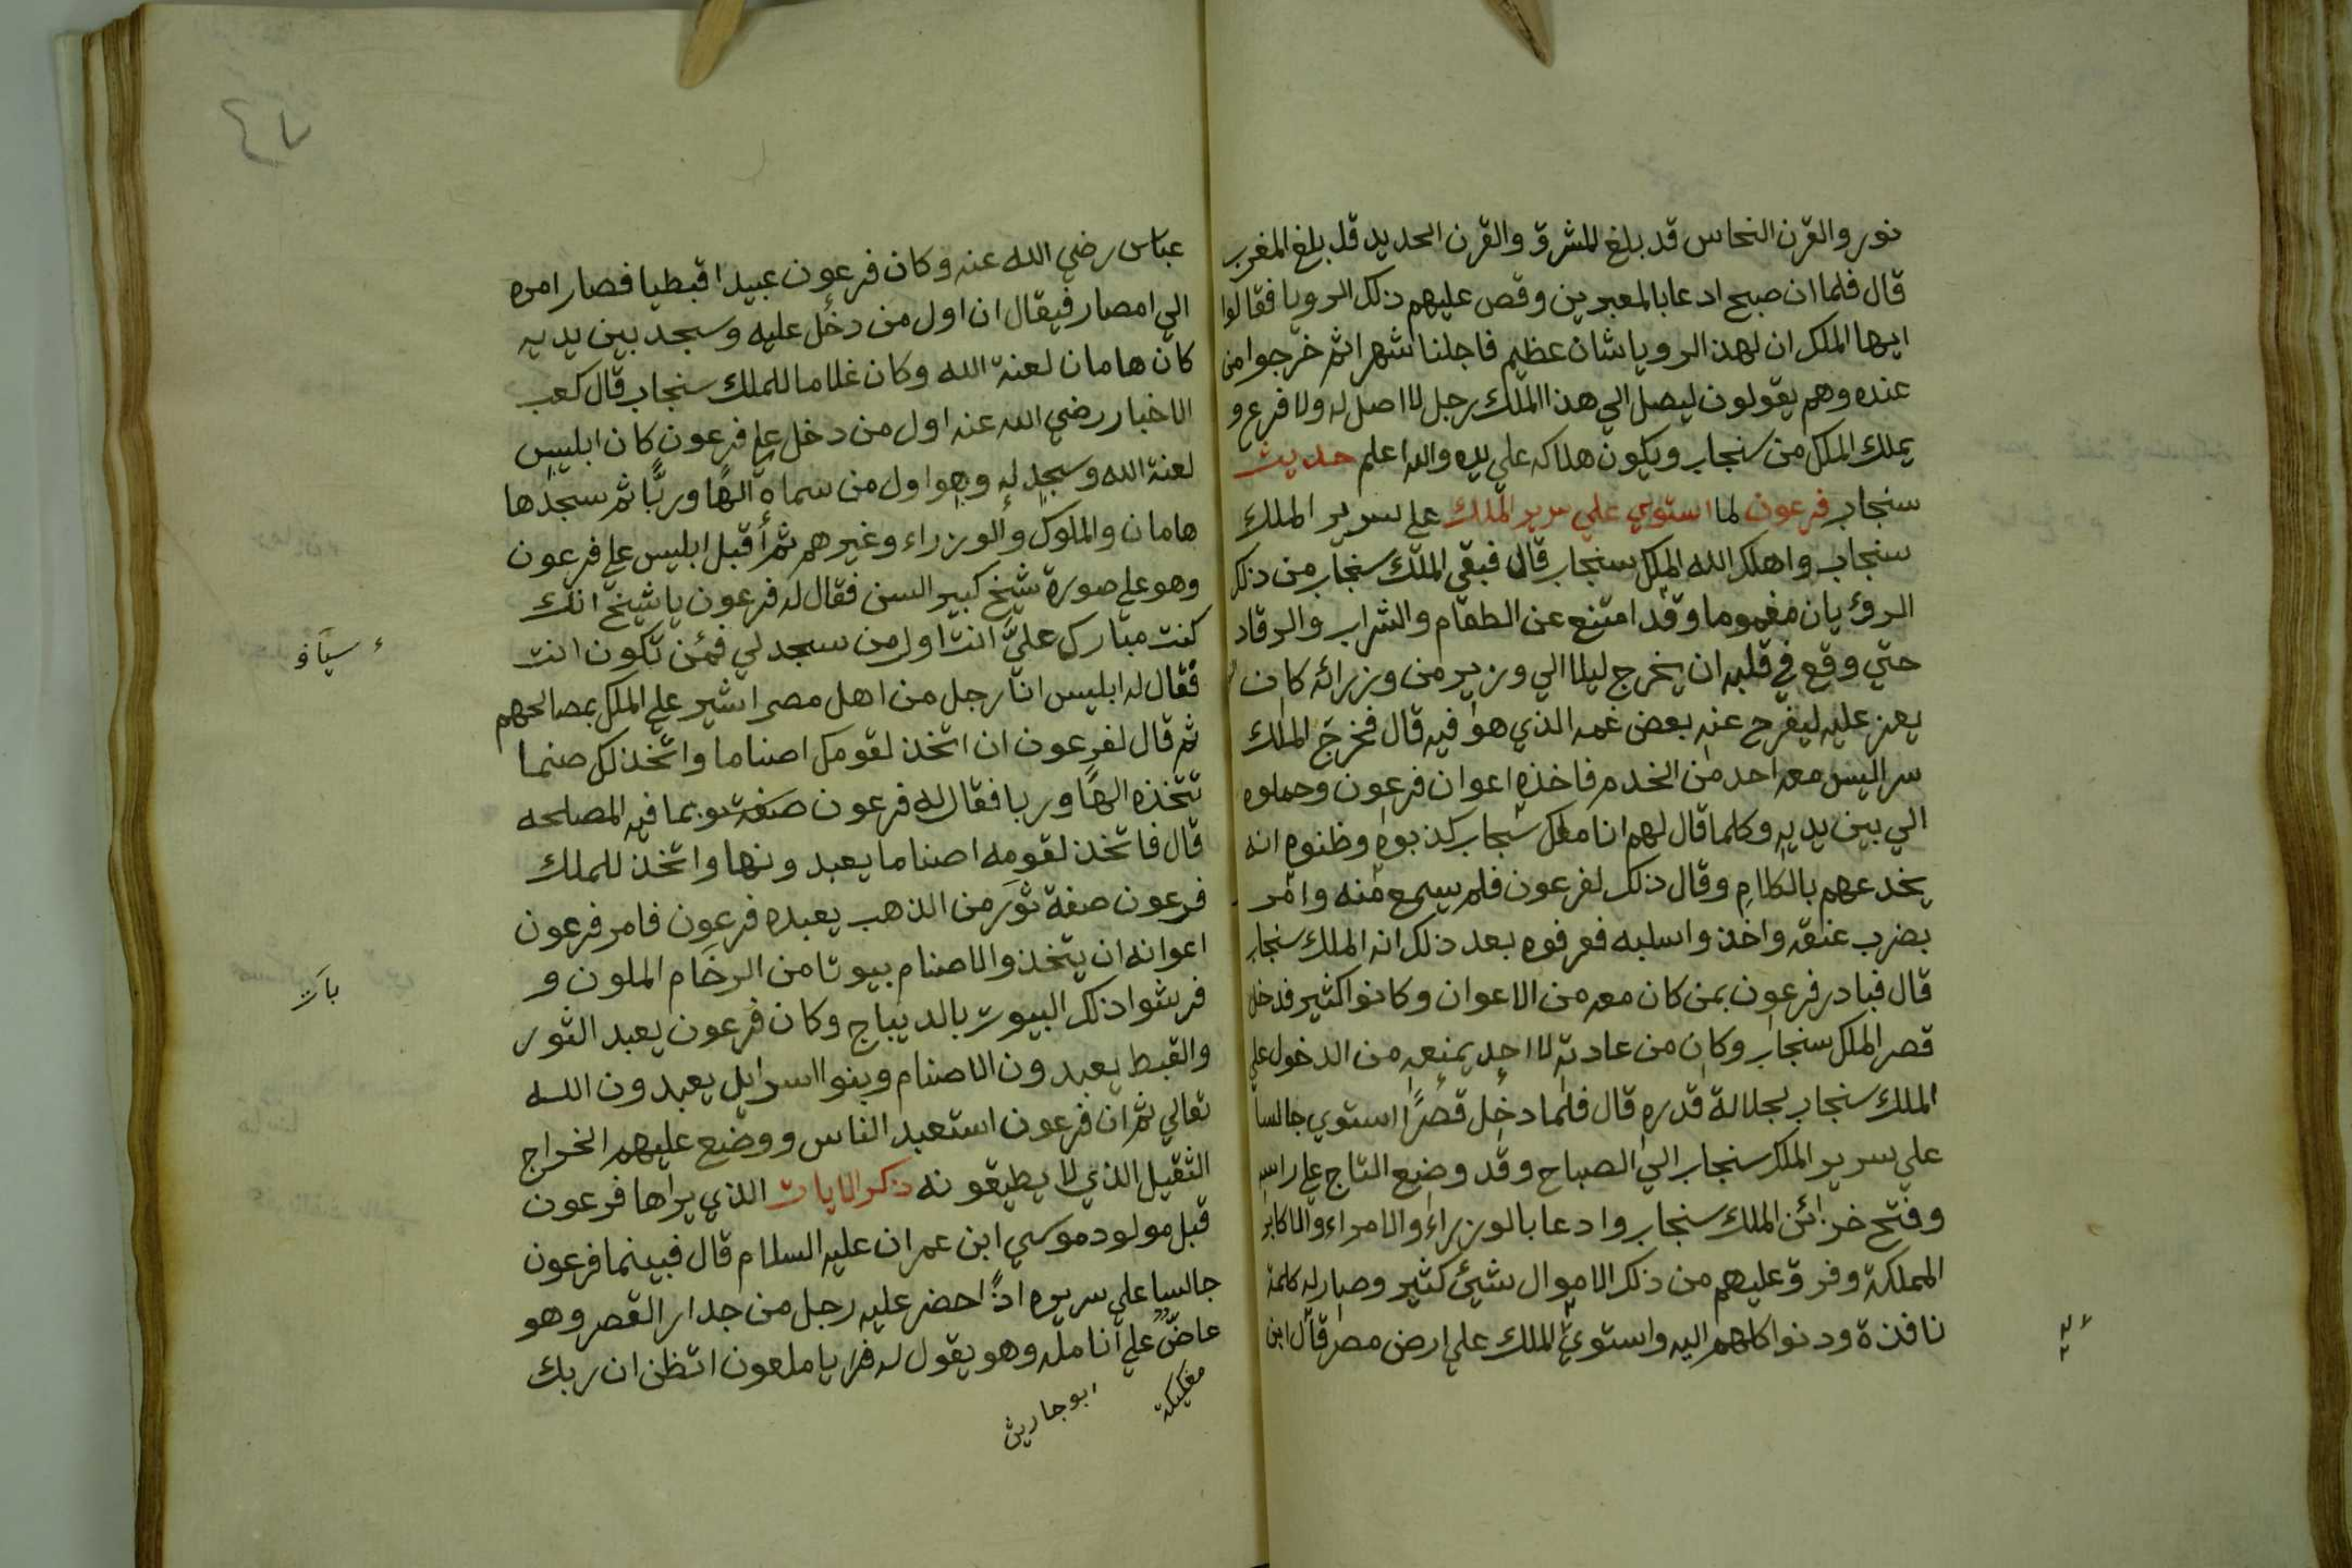 نور والقرن النحاس قد بلغ المشرق والقرن الحديد قد بلغ المغرب
قال فلما ان صبح ادعا بالمعبرين وقص عليهم ذلك الرويا فقالوا
ايها الملك ان لهذ الرويا شان عظيم فاجلنا شهرا ثم خرجوا من
عنده وهم يقولون ليصل الي هذا الملك رجل لا اصل له ولا فرع و
يملك الملك من سنجاب ويكون هلاكه علي يده والله اعلم حديث
سنجاب فرعون لما استوي علي سرير الملك علي سرير الملك
سنجاب واهلك الله الملك سنجاب قال فبقي الملك سنجاب من ذلك
الرؤيان مغموما وقد امتنع عن الطعام والشراب والرقاد
حتي وقع في قلبه ان يخرج ليلا الي وزير من وزرائه كان
يعز عليه ليفرح عنه بعض غمه الذي هو فيه قال فخرج الملك
سرا ليس معه احد من الخدم فاخذه اعوان فرعون وحملوه
الي بين يديه وكلما قال لهم انا ملك سنجاب كذبوه وظنوه انه
يخدعهم بالكلام وقال ذلك لفرعون فلم يسمع منه وامر
بضرب عنقه واخذ واسلبه فعرفوه بعد ذلك انه الملك سنجاب
قال فبادر فرعون بمن كان معه من الاعوان وكانوا كثير فدخل
قصر الملك سنجاب وكان من عادته لا احد يمنعه من الدخول علي
الملك سنجاب لجلالة قدره قال فلما دخل قصرًا استوي جالسا
علي سرير الملك سنجاب الي الصباح وقد وضع التاج علي راسه
وفتح خزائن الملك سنجاب وادعا بالوزراء والامراء والاكابر
المملكة وفرق عليهم من ذلك الاموال شيئ كثير وصار له كلمة
نافذة ودنوا كلهم اليه واستوي الملك علي ارض مصر قال ابن
عباس رضي الله عنه وكان فرعون عبيدا قبطيا فصار امره
الي امصار فيقال ان اول من دخل عليه وسجد بين يديه
كان هامان لعنة الله وكان غلاما للملك سنجاب قال كعب
الاخبار رضي الله عنه اول من دخل علي فرعون كان ابليس
لعنة الله وسجد له وهو اول من سماه الهًا وربًّا ثم سجدها
هامان والملوك والوزراء وغيرهم ثم اقبل ابليس علي فرعون
وهو علي صورة شيخ كبير السن فقال له فرعون يا شيخ انك
كنت مبارك عليَّ انت اول من سجد لي فمن تكون انت
فقال له ابليس انا رجل من اهل مصر اشير علي الملك بمصالحهم
ثم قال لفرعون ان اتخذ لقومك اصناما واتخذ لك صنما
تتخذه الهًا وربا فقال له فرعون بما فيه المصلحه
قال فاتخذ لقومه اصناما يعبدونها واتخذ للملك
فرعون صفة ثور من الذهب يعبده فرعون فامر فرعون
اعوانه ان يتخذوا الاصنام بيوتا من الرخام الملون و
فرشوا ذلك البيوت بالديباج وكان فرعون يعبد الثور
والقبط يعبدون الاصنام وبنوا اسرايل يعبدون الله
تعالي ثم ان فرعون استعبد الناس ووضع عليهم الخراج
الثقيل الذي لا يطيقونه ذكر الايات الذي يراها فرعون
قبل مولود موسي ابن عمران عليه السلام قال فبينما فرعون
جالسا علي سريره اذًا حضر عليه رجل من جدار القصر وهو
عاضٌّ علي انامله وهو يقول له فر يا ملعون اتظن ان ربك